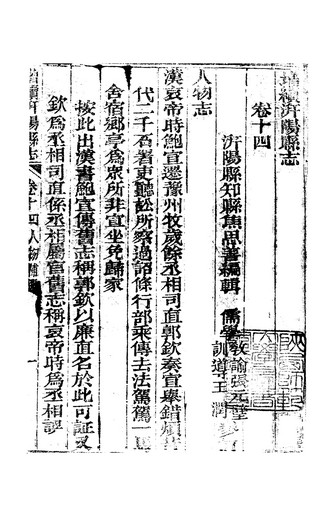 增續汧陽縣志
卷十四
汧陽縣知縣焦思善編輯 儒學教諭張元璧
訓導王潤
人物志
漢哀帝時鮑宣遷豫州牧歲餘丞相司直郭欽奏宣舉錯煩苛
代二千石署吏聽訟所察過詔條行部乘傳去法駕駕一
舍宿鄉亭為衆所非宣坐免歸家
按此出漢書鮑宣傳舊志稱郭欽以廉直名於此可証又
欽為丞相司直係丞相屬官舊志稱哀帝時為丞相謬
增續汧陽縣志 卷十四 人物 一